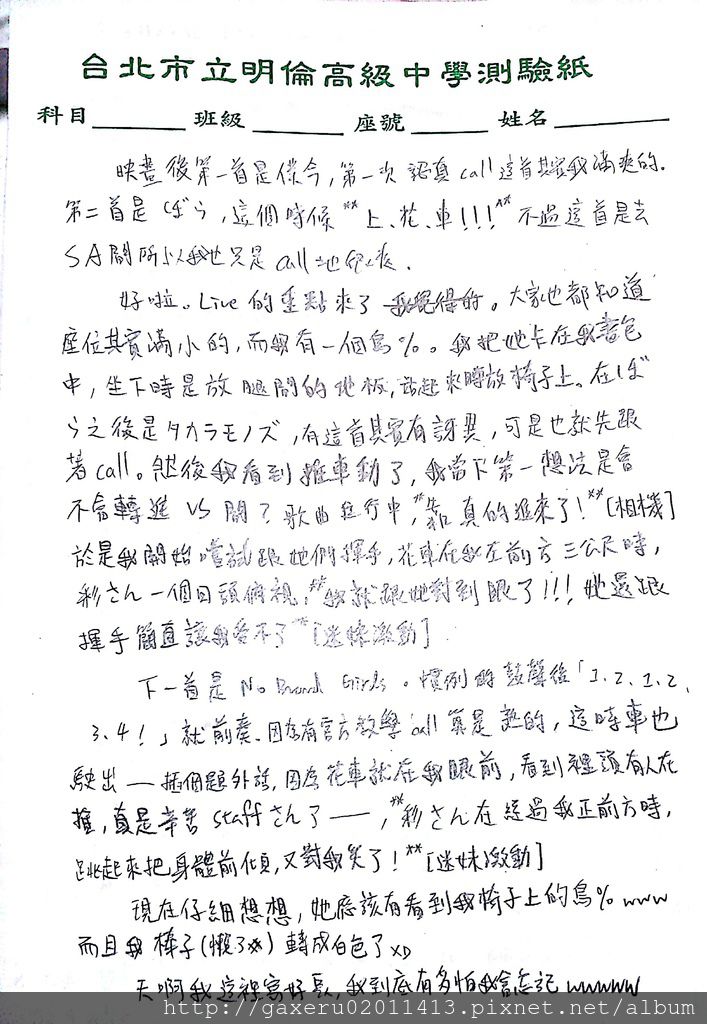 台北市立明倫高級中學測驗紙
科目 班級 座號 姓名
映畫後第一首是僕今,第一次認真call這首其實我滿爽的.
第二首是ぼら,這個時候**上、花、車!!!**不過這首是去
SA間所以我也只是call
好啦。Live的重點來了 大家也都知道
座位其實滿小的,而我有一個鳥%。我把她卡在我書包
中,坐下時是放腿間的地板,站起來時放椅子上。在ぼ
ら之後是タカラモノズ,有這首其實有訝異,可是也就先跟
著call。然後我看到推車動了,我當下第一想法是會
不會轉進VS間?歌曲進行中,**真的進來了!**[相機]
於是我開始嚐試跟她們揮手,花車在我左前方三公尺時,
彩さん一個回頭俯視,**我就跟她對到眼了!!!她還跟
揮手簡直讓我受不了**[迷妹激動]
下一首是No Brand Girls。慣例的鼓聲後「1、2、1、2、
3、4!」就前奏、因為有官方教學call算是熟的,這時車也
駛出——插個題外話,因為花車就在我眼前,看到裡頭有人在
推,真是辛苦staffさん了——,**彩さん在經過我正前方時,
跳起來把身體前傾,又對我笑了!**[迷妹激動]
現在仔細想想,她應該有看到我椅子上的鳥%www
而且我棒子(懶了x)轉成白色了XD
天啊我這裡寫好長,我到底有多怕我會忘記wwwww
http://gaxeru02011413.pixnet.net/album